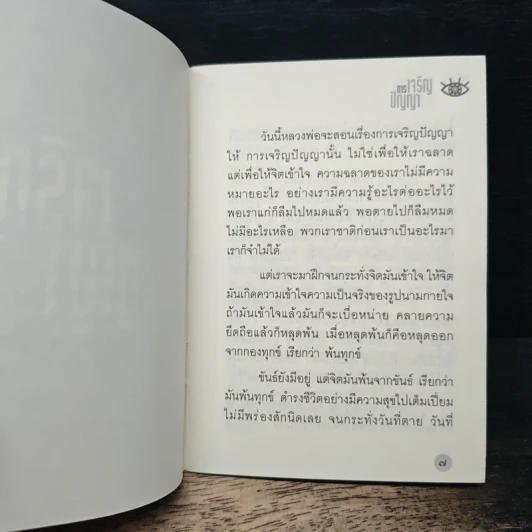 การเจริญ
ปัญญา
วันนี้หลวงพ่อจะสอนเรื่องการเจริญปัญญา
ให้ การเจริญปัญญานั้น ไม่ใช่เพื่อให้เราฉลาด
แต่เพื่อให้จิตเข้าใจ ความฉลาดของเราไม่มีความ
หมายอะไร อย่างเรามีความรู้อะไรต่ออะไรไว้
พอเราแก่ก็ลืมไปหมดแล้ว พอตายไปก็ลืมหมด
ไม่มีอะไรเหลือ พวกเราชาติก่อนเราเป็นอะไรมา
เราก็จำไม่ได้
แต่เราจะมาฝึกจนกระทั่งจิตมันเข้าใจ ให้จิต
มันเกิดความเข้าใจความเป็นจริงของรูปนามกายใจ
ถ้ามันเข้าใจแล้วมันก็จะเบื่อหน่าย คลายความ
ยึดถือแล้วก็หลุดพ้น เมื่อหลุดพ้นก็คือหลุดออก
จากกองทุกข์ เรียกว่า พ้นทุกข์
ขันธ์ยังมีอยู่ แต่จิตมันพ้นจากขันธ์ เรียกว่า
มันพ้นทุกข์ ดำรงชีวิตอย่างมีความสุขไปเต็มเปี่ยม
ไม่มีพร่องสักนิดเลย จนกระทั่งวันที่ตาย วันที่
๗